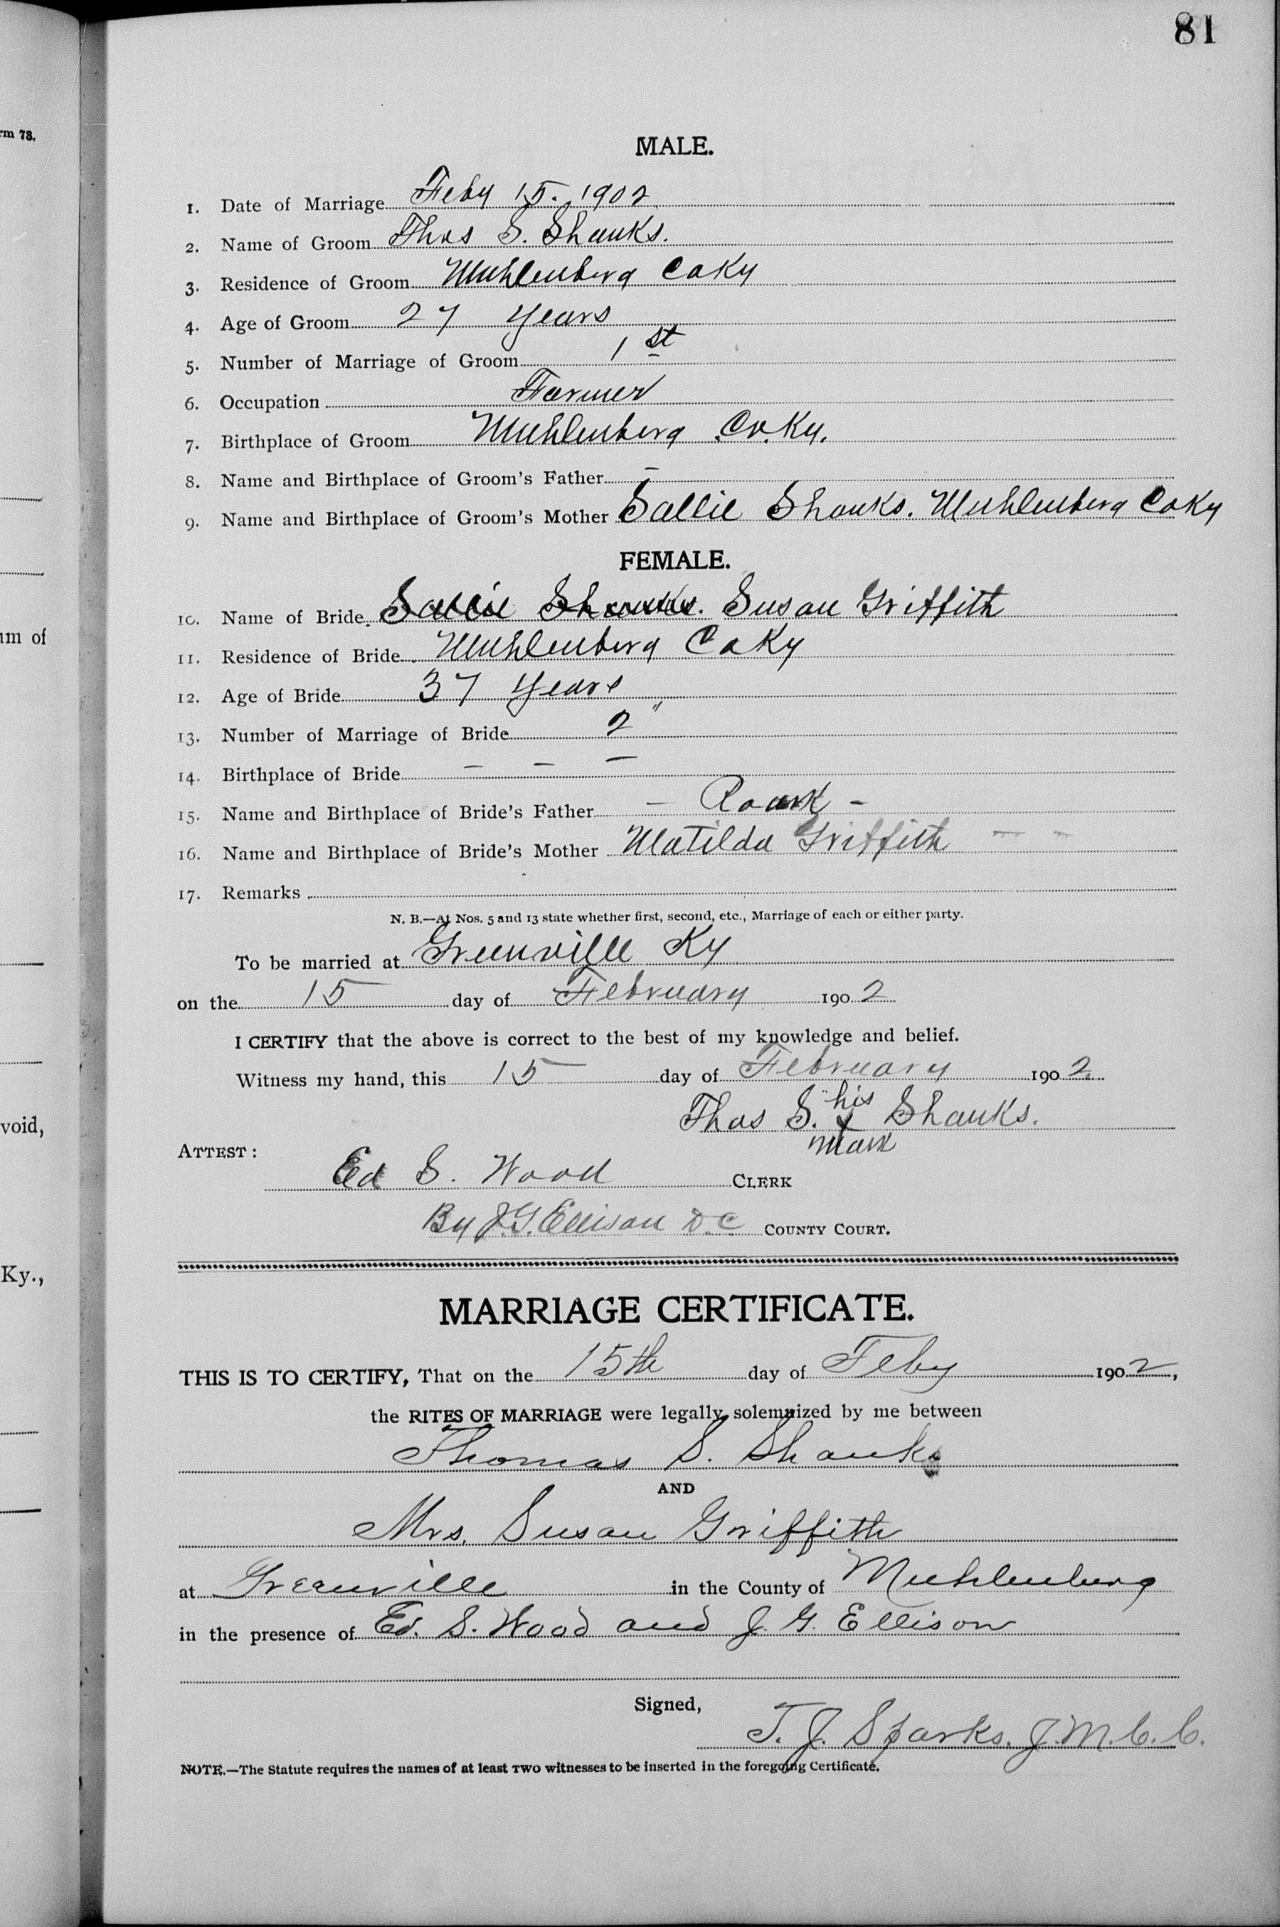 81
rm 73.
MALE.
1. Date of Marriage Feby 15. 1902
2. Name of Groom Thos S. Shanks.
3. Residence of Groom Muhlenberg Co Ky
4. Age of Groom 27 Years
5. Number of Marriage of Groom 1st
6. Occupation Farmer
7. Birthplace of Groom Muhlenberg Co. Ky.
8. Name and Birthplace of Groom's Father –
9. Name and Birthplace of Groom's Mother Sallie Shanks. Muhlenberg Co Ky
FEMALE.
10. Name of Bride Sallie Shanks. Susan Griffith
um of
11. Residence of Bride Muhlenberg Co Ky
12. Age of Bride 37 Years
13. Number of Marriage of Bride 2"
14. Birthplace of Bride – – –
15. Name and Birthplace of Bride's Father – Roark –
16. Name and Birthplace of Bride's Mother Matilda Griffith – –
17. Remarks
N. B.—At Nos. 5 and 13 state whether first, second, etc., Marriage of each or either party.
To be married at Greenville Ky
on the 15 day of February 1902
I CERTIFY that the above is correct to the best of my knowledge and belief.
Witness my hand, this 15 day of February 1902
his
Thos S. x Shanks.
void,
mark
ATTEST:
Ed S. Wood CLERK
By J. G. Ellison D.C. COUNTY COURT.
Ky.,
MARRIAGE CERTIFICATE.
THIS IS TO CERTIFY, That on the 15th day of Feby 1902,
the RITES OF MARRIAGE were legally solemnized by me between
Thomas S. Shanks
AND
Mrs. Susan Griffith
at Greenville in the County of Muhlenberg
in the presence of Ed. S. Wood and J. G. Ellison
Signed,
T. J. Sparks. J.M.C.C.
NOTE.—The Statute requires the names of at least TWO witnesses to be inserted in the foregoing Certificate.